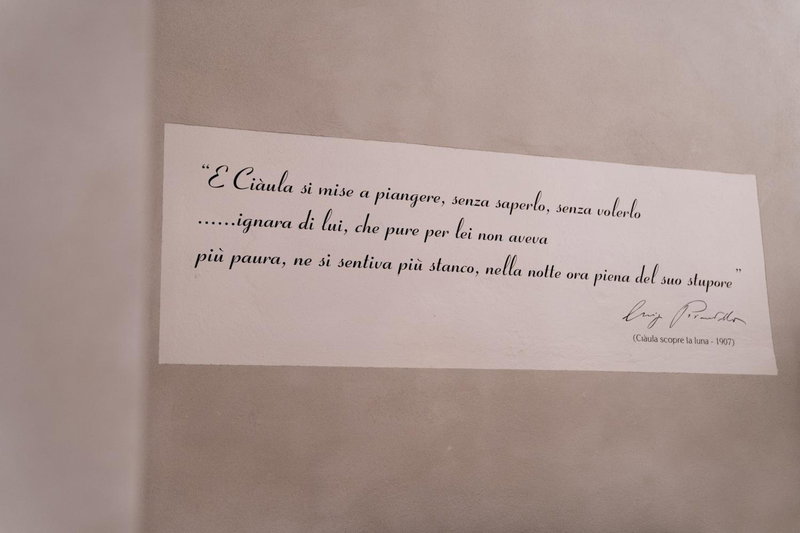 “E Ciàula si mise a piangere, senza saperlo, senza volerlo
......ignara di lui, che pure per lei non aveva
più paura, ne si sentiva più stanco, nella notte ora piena del suo stupore”
Luigi Pirandello
(Ciàula scopre la luna - 1907)